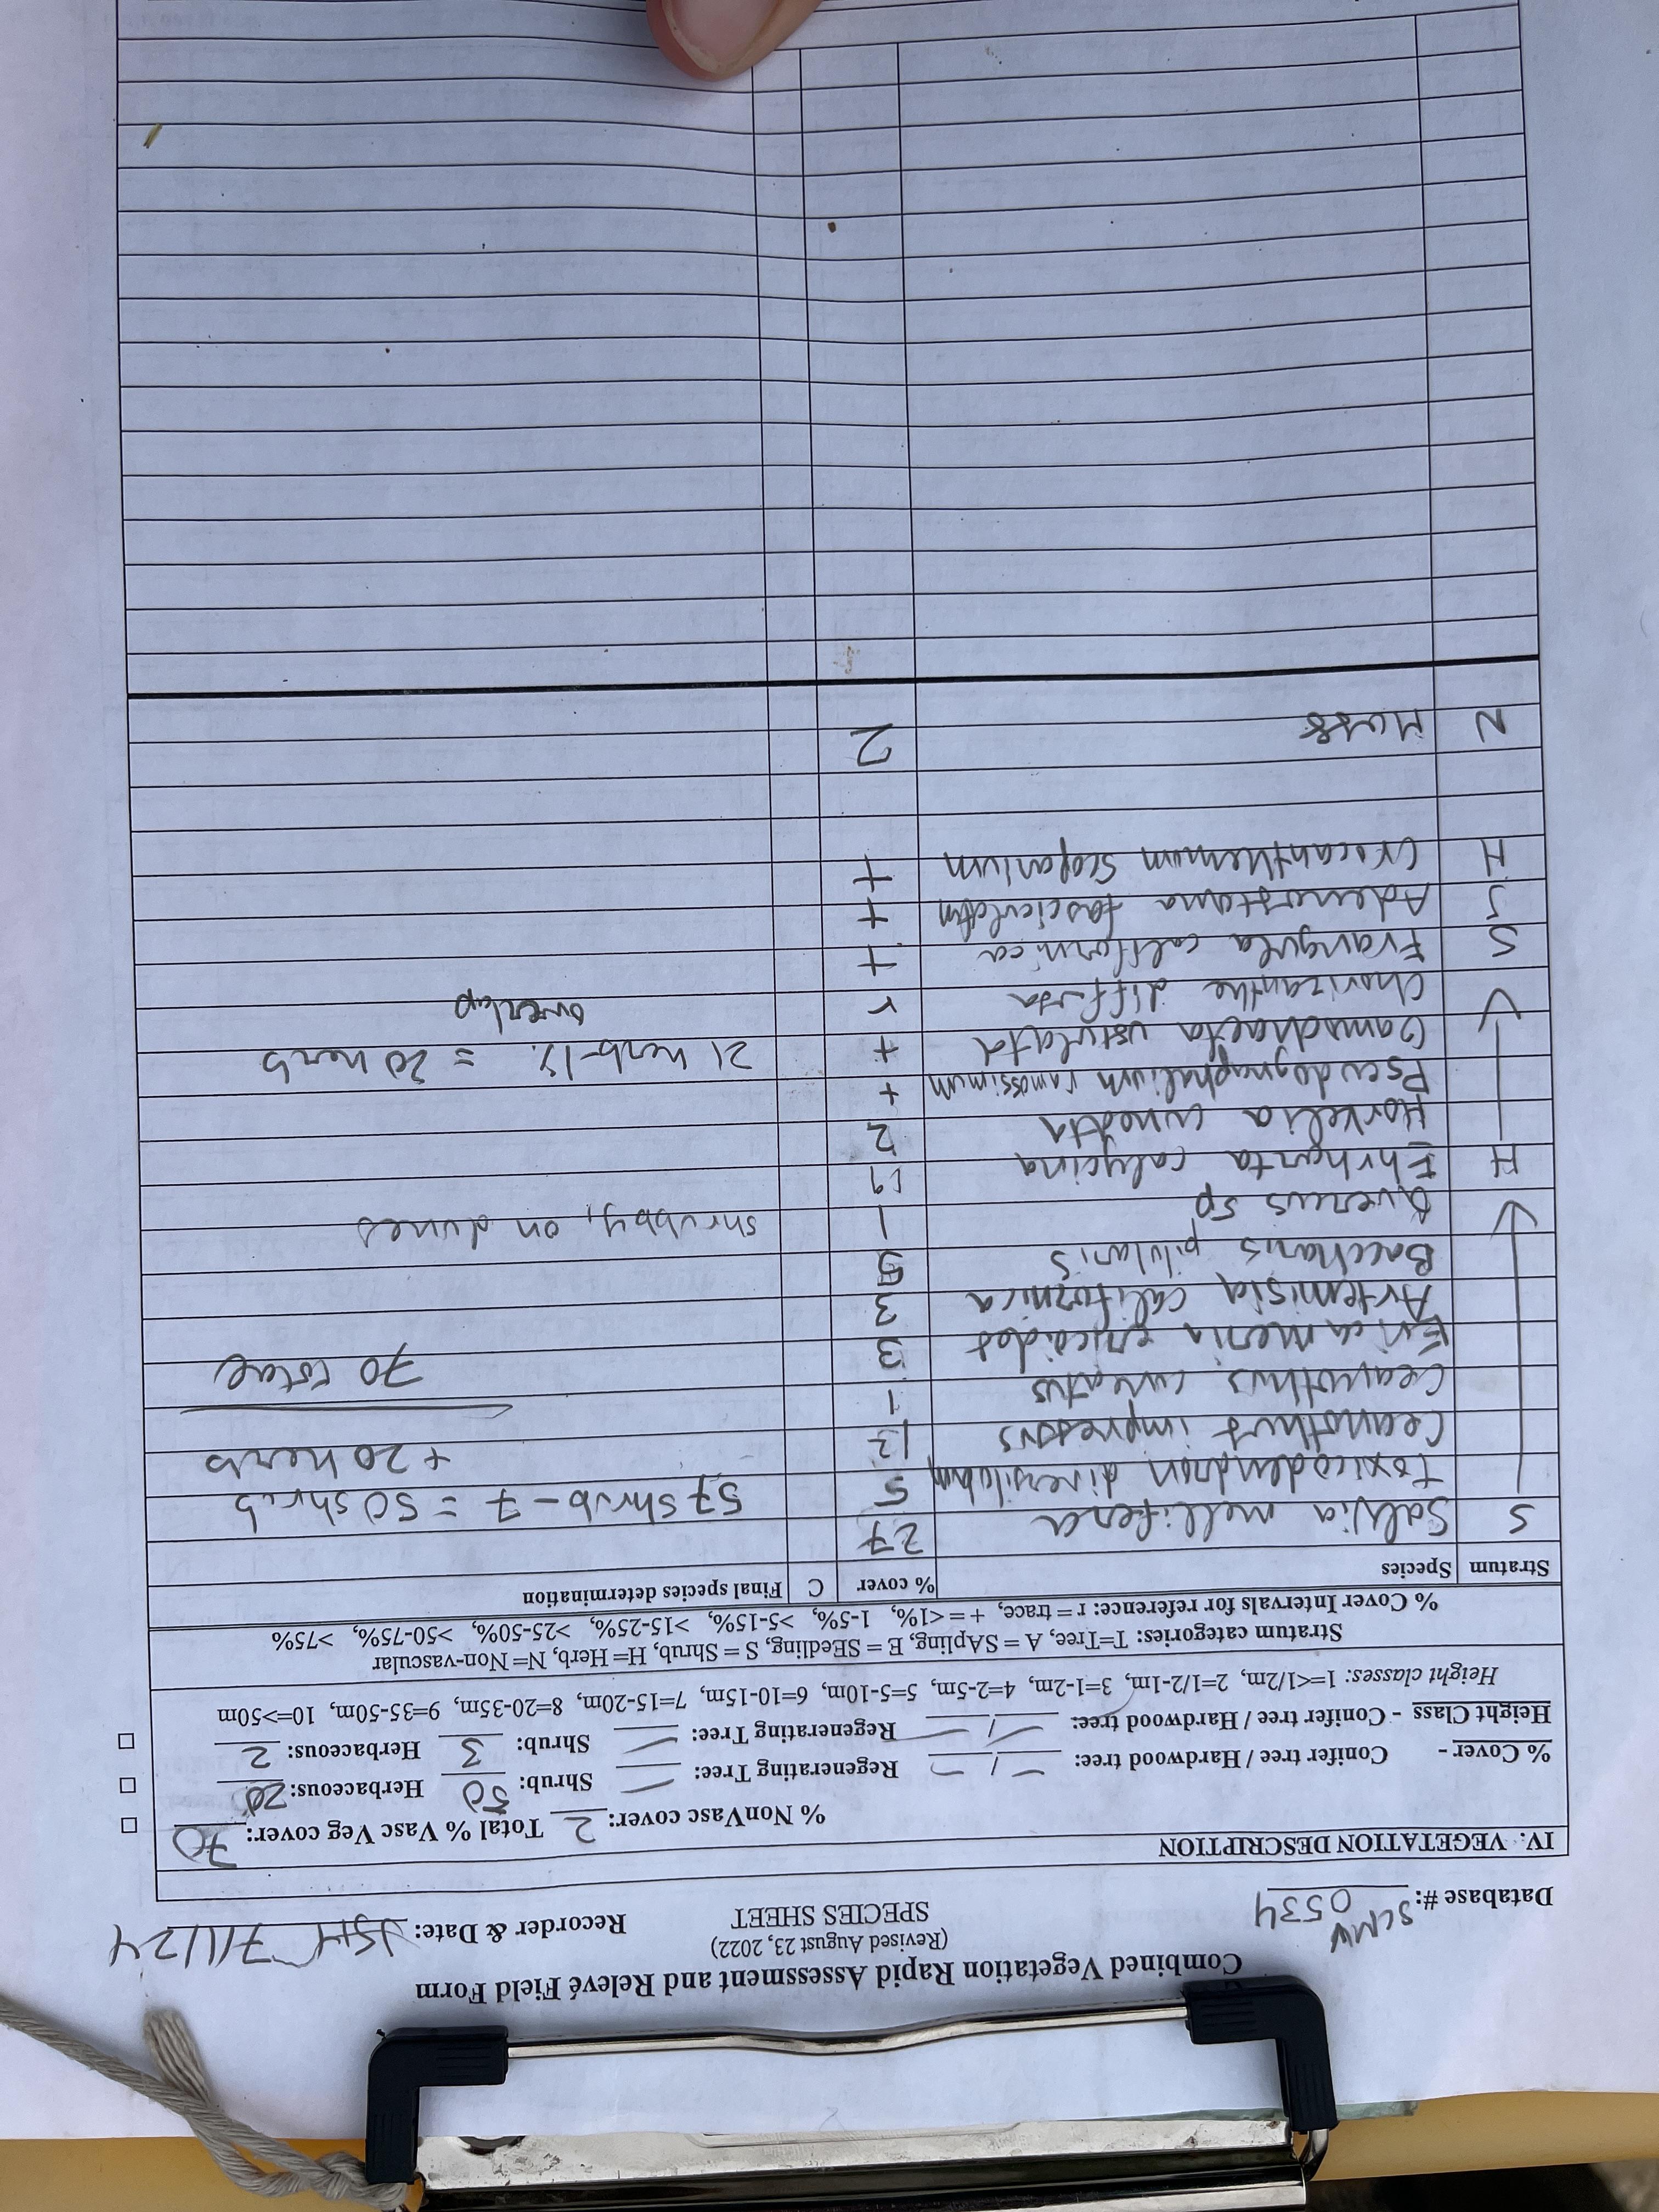 Combined Vegetation Rapid Assessment and Relevé Field Form
(Revised August 23, 2022)
SPECIES SHEET
Database #: SCMW 0534
Recorder & Date: JSH 7/1/24
IV. VEGETATION DESCRIPTION
% NonVasc cover: 2 Total % Vasc Veg cover: 70
% Cover - Conifer tree / Hardwood tree: — / — Regenerating Tree: — Shrub: 50 Herbaceous: 20
Height Class - Conifer tree / Hardwood tree: — / — Regenerating Tree: — Shrub: 3 Herbaceous: 2
Height classes: 1=<1/2m, 2=1/2-1m, 3=1-2m, 4=2-5m, 5=5-10m, 6=10-15m, 7=15-20m, 8=20-35m, 9=35-50m, 10=>50m
Stratum categories: T=Tree, A = SApling, E = SEedling, S = Shrub, H= Herb, N= Non-vascular
% Cover Intervals for reference: r = trace, + = <1%, 1-5%, >5-15%, >15-25%, >25-50%, >50-75%, >75%
Stratum Species % cover C Final species determination
S Salvia mellifera 27
Toxicodendron diversilobum 5 57 shrub - 7 = 50 shrub
Ceanothus impressus 13 + 20 herb
Ceanothus cuneatus 1
Ericameria ericoides 3 70 total
Artemisia californica 3
Baccharis pilularis 5
Quercus sp 1 shrubby, on dunes
H Ehrharta calycina 19
Horkelia cuneata 2
Pseudognaphalium ramosissimum +
Gamochaeta ustulata + 21 herb - 1% = 20 herb
Chorizanthe diffusa r overlap
S Frangula californica +
S Adenostoma fasciculatum +
H Crocanthemum scoparium +
N Moss 2